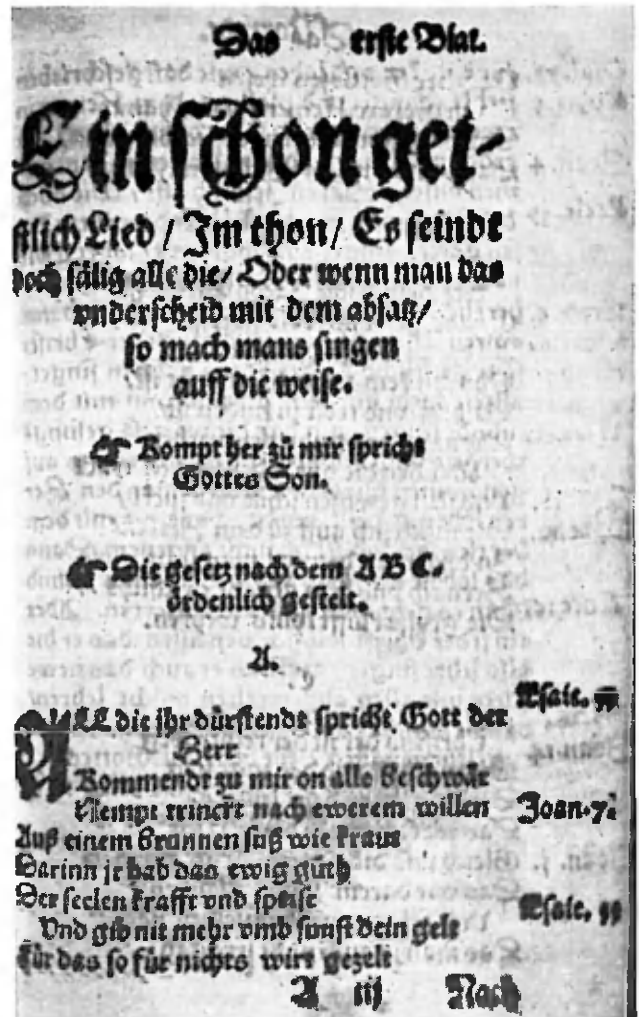 Das erste Blat.
Ein schon gei-
stlich Lied / Im thon / Es seindt
doch sälig alle die / Oder wenn man das
vnderscheid mit dem absatz /
so mach mans singen
auff die weise.
☞ Kompt her zů mir spricht
Gottes Son.
☞ Die gesetz nach dem A B C.
ordenlich gestelt.
A.
ALL die jhr dürstendt spricht Gott der
Esaie. 55
Herr
Kommendt zu mir on alle beschwär
Nempt nach ewerem willen
Joan. 7.
Auß einem Brunnen süß wie
Darinn jr hab das ewig gůth
Der seelen krafft vnd speise
Esaie. 55
Vnd gib nit mehr vmb sunst dein gelt
für das so für nichts wirt gezelt
A iij Nach